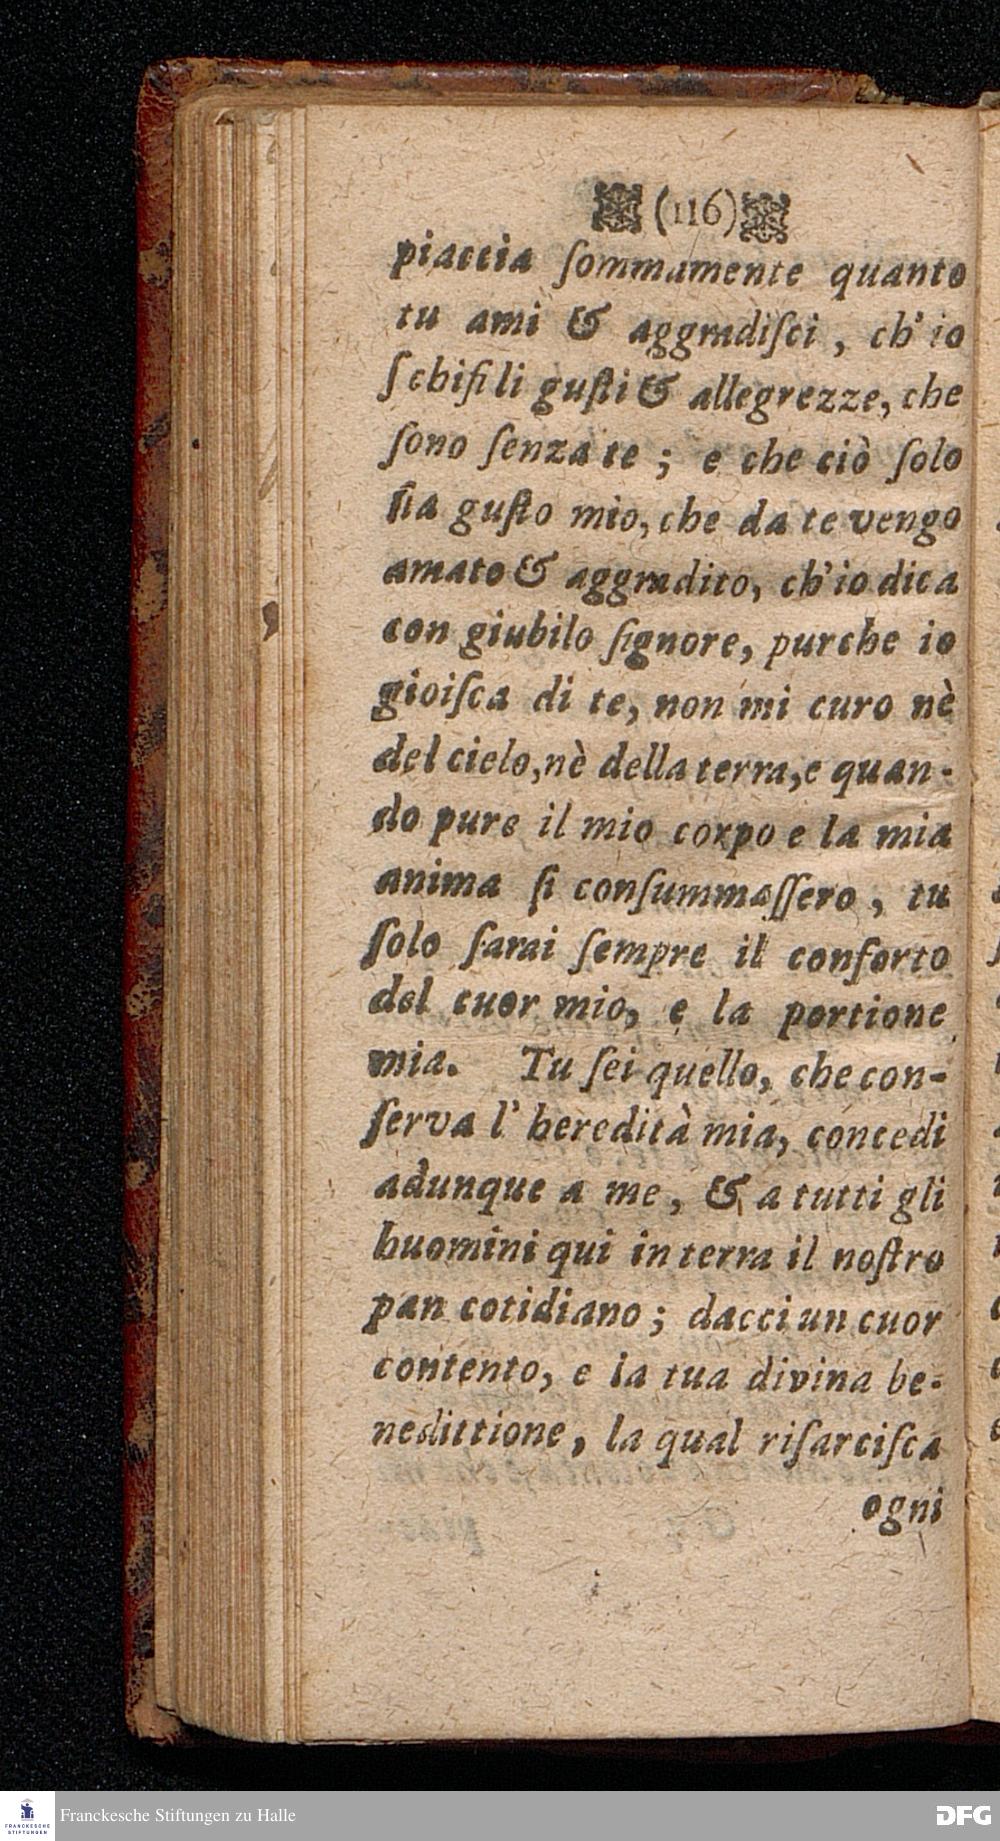 (116)
piaccia ſommamente quanto
tu ami & aggradiſci, ch' io
ſchifi li guſti & allegrezze, che
ſono ſenza te; e che ciò ſolo
ſia guſto mio, che da te vengo
amato & aggradito, ch' io dica
con giubilo ſignore, purche io
gioiſca di te, non mi curo nè
del cielo, nè della terra, e quan-
do pure il mio corpo e la mia
anima ſi conſummaſſero, tu
ſolo ſarai ſempre il conforto
del cuor mio, e la portione
mia. Tu ſei quello, che con-
ſerva l' heredità mia, concedi
adunque a me, & a tutti gli
huomini qui in terra il noſtro
pan cotidiano; dacci un cuor
contento, e la tua divina be-
nedittione, la qual riſarciſca
ogni
FRANCKESCHE
STIFTUNGEN
Franckesche Stiftungen zu Halle
DFG